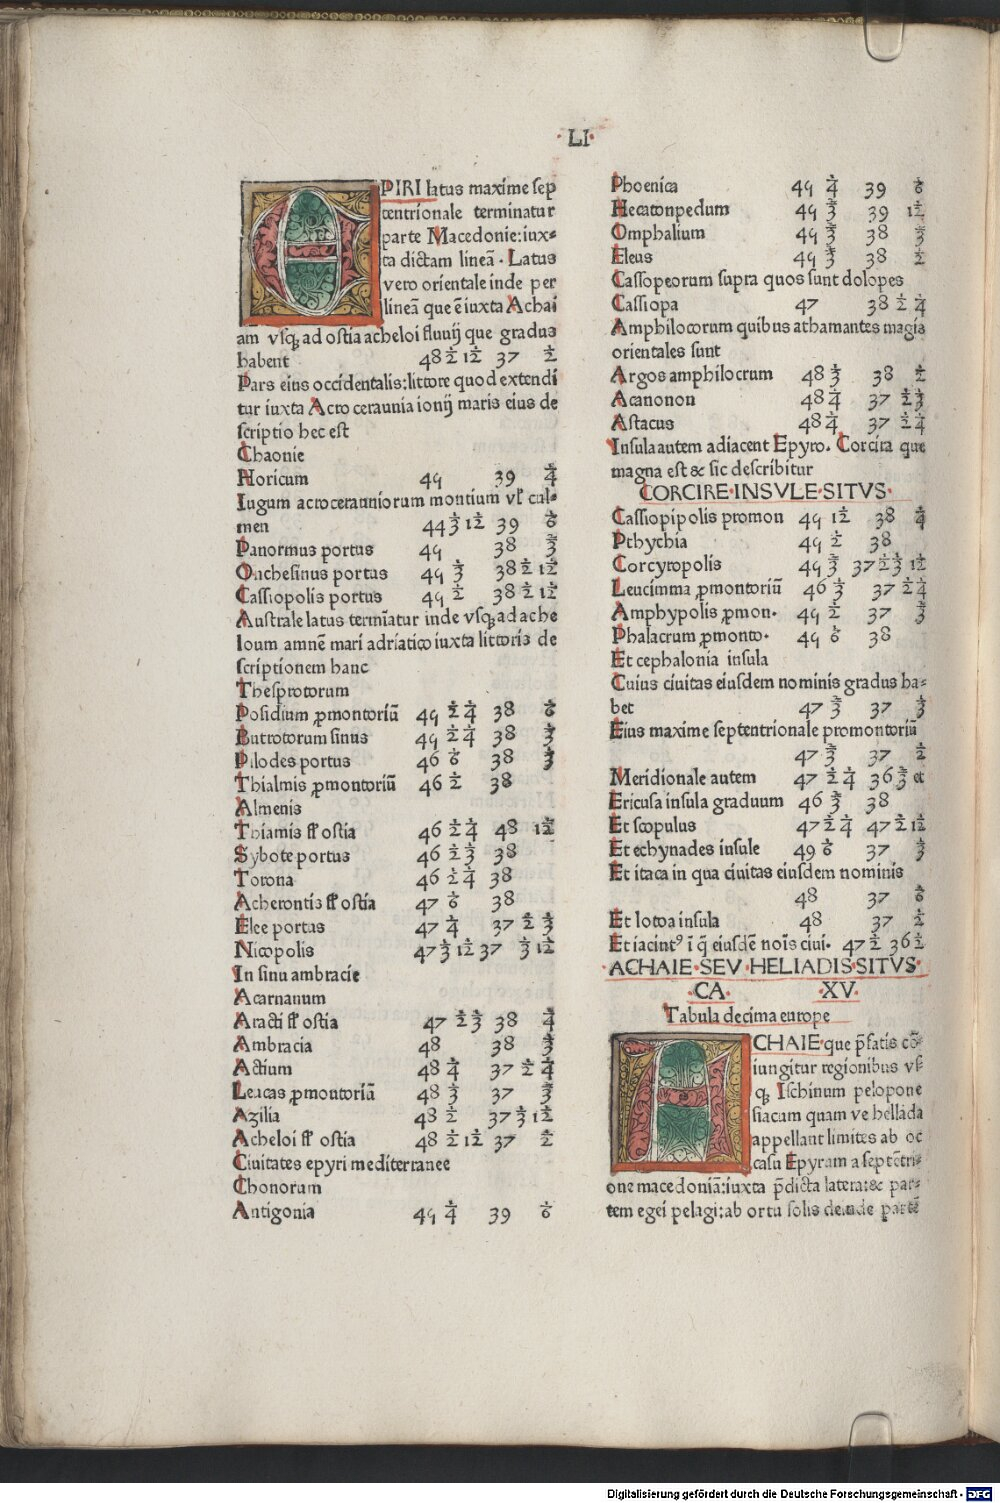 ·LI·
EPIRI latus maxime sep
tentrionale terminatur
parte Macedonie: iux⸗
ta dictam lineā · Latus
vero orientale inde per
lineā que ē iuxta Achai
am vsqꝫ ad ostia acheloi fluuij que gradus
habent 48 ½ 1/12 37 ½
Pars eius occidentalis: littore quod extendi
tur iuxta Acro ceraunia ionij maris eius de
scriptio hec est
Chaonie
Noricum 49 39 ¼
Iugum acrocerauniorum montium vl' cul⸗
men 44 ⅓ 1/12 39 1/6
Panormus portus 49 38 ⅔
Onchesinus portus 49 ⅓ 38 ½ 1/12
Cassiopolis portus 49 ½ 38 ½ 1/12
Australe latus termīatur inde vsqꝫ ad ache
loum amnē mari adriatico iuxta littoris de
scriptionem hanc
Thesprotorum
Posidium ꝓmontoriū 49 ½ ¼ 38 1/6
Butrotorum sinus 49 ½ ¼ 38 ⅓
Pilodes portus 46 1/6 38 ⅓
Thialmis ꝓmontoriū 46 ½ 38
Almenis
Thiamis fl' ostia 46 ½ ¼ 48 1/12
Sybote portus 46 ½ ⅓ 38
Torona 46 ½ ¼ 38
Acherontis fl' ostia 47 1/6 38
Elee portus 47 ¼ 37 ½ ⅓
Nicopolis 47 ⅓ 1/12 37 ⅓ 1/12
In sinu ambracie
Acarnanum
Aracti fl' ostia 47 ½ ⅓ 38 ¼
Ambracia 48 38 ⅓
Actium 48 ¼ 37 ½ ¼
Leucas ꝓmontoriā 48 ⅓ 37 ⅔
Azilia 48 ½ 37 ⅓ 1/12
Acheloi fl' ostia 48 ½ 1/12 37 ½
Ciuitates epyri mediterranee
Chonorum
Antigonia 49 ¼ 39 1/6
Phoenica 49 ¼ 39 1/6
Hecatonpedum 49 ⅔ 39 1/12
Omphalium 49 ⅔ 38 ⅔
Eleus 49 ⅔ 38 ½
Cassopeorum supra quos sunt dolopes
Cassiopa 47 38 ½ ¼
Amphilocorum quibus athamantes magis
orientales sunt
Argos amphilocrum 48 ⅓ 38 ½
Acanonon 48 ¼ 37 ½ ⅓
Astacus 48 ¼ 37 ½ ¼
Insula autem adiacent Epyro. Corcira que
magna est & sic describitur
CORCIRE·INSVLE·SITVS·
Cassiopipolis promon 49 1/12 38 ¼
Pthychia 49 ½ 38
Corcyropolis 49 ⅔ 37 ½ ⅓ 1/12
Leucimma ꝓmontoriū 46 ⅓ 37 ½ ¼
Amphypolis ꝓmon· 49 ½ 37 ⅔
Phalacrum ꝓmonto· 49 1/6 38
Et cephalonia insula
Cuius ciuitas eiusdem nominis gradus ha⸗
bet 47 ⅔ 37 ⅓
Eius maxime septentrionale promontoriū
47 ⅔ 37 ½
Meridionale autem 47 ½ ¼ 36 ⅔ et
Ericusa insula graduum 46 ⅔ 38
Et scopulus 47 ½ ¼ 47 ½ 1/12
Et echynades insule 49 1/6 37 ⅓
Et itaca in qua ciuitas eiusdem nominis
48 37 1/6
Et lotoa insula 48 37 ½
Et iacintꝰ ī q̄ eiusdē noīs ciui· 47 ½ 36 ½
·ACHAIE·SEV·HELIADIS·SITVS·
·CA· ·XV·
Tabula decima europe
ACHAIE·que p̄fatis cō⸗
iungitur regionibus vs
qꝫ Ischinum pelopone
siacam quam ve hellada
appellant limites ab oc
casu Epyram a septētri⸗
one macedoniā: iuxta p̄dicta latera: & par⸗
tem egei pelagi: ab ortu solis deinde partē
Digitalisierung gefördert durch die Deutsche Forschungsgemeinschaft - DFG